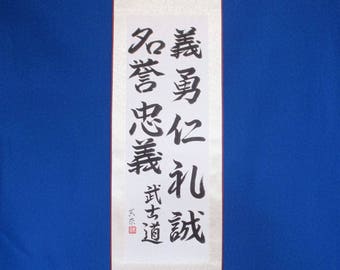 義勇仁礼誠
名誉忠義
武士道